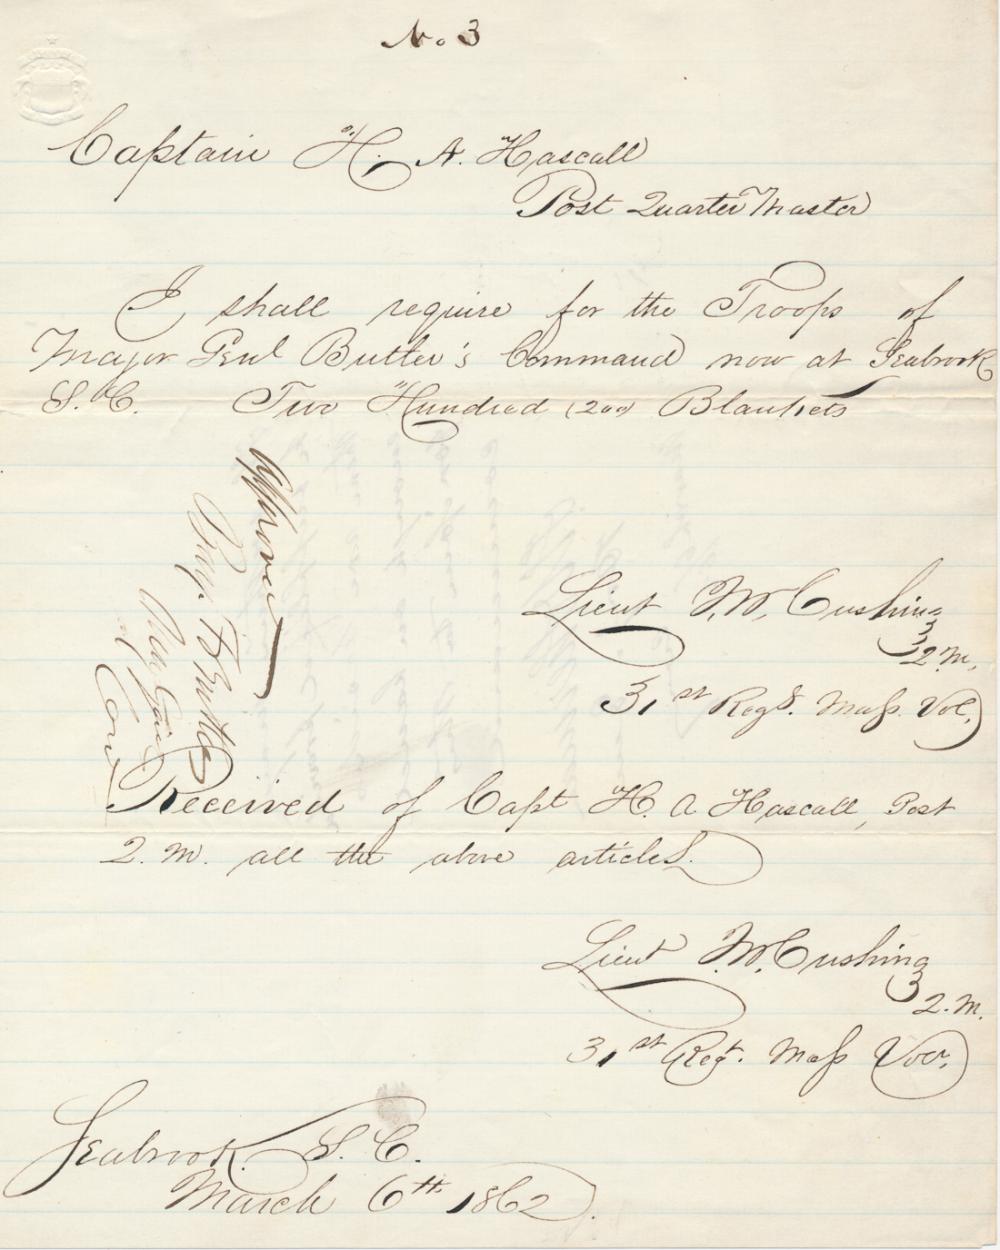 No. 3
Captain H. A. Hascall
Post Quarter Master
I shall require for the Troops of
Major Genl Butler's Command now at Seabrook
S. C. Two Hundred (200) Blankets
Approved
Benj. F. Butler
Maj Gen
Com
Lieut F. W. Cushing
Q. M.
31st Regt. Mass. Vol.
Received of Capt H. A Hascall, Post
Q. M. all the above articles.
Lieut F. W. Cushing
Q. M.
31st Regt. Mass Vol.
Seabrook S. C.
March 6th 1862.